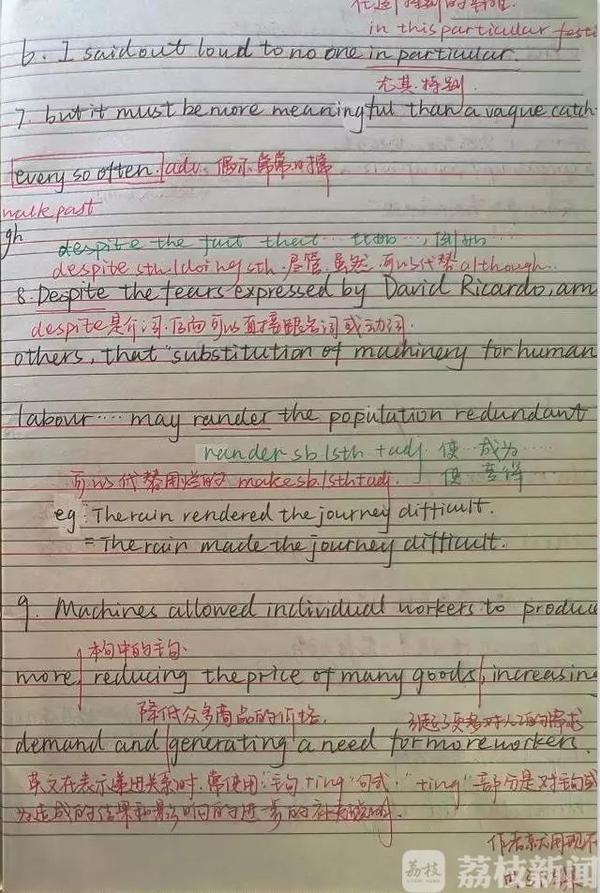 in this particular
6. I said out loud to no one in particular.
尤其.特别
7. but it must be more meaningful than a vague catch-
every so often. adv. 偶尔.常常.时常
walk past
gh
despite the fact that … 比如…, 例如…
despite sth/doing sth.尽管.虽然.可以代替although.
8. Despite the fears expressed by David Ricardo, am
despite是介词.后面可以直接跟名词或动词.
others, that "substitution of machinery for human
labour … may rander the population redundant
rander sb/sth + adj. 使…成为…
可以代替用烂的 make sb./sth + adj. 使…变得
eg: The rain rendered the journey difficult.
= The rain made the journey difficult.
9. Machines allowed individual workers to produc
本句中的主句.
more, reducing the price of many goods, increasing
降低众多商品的价格. 引起了更多对人工的需求
demand and generating a need for more workers.
英文在表示递进关系时.常使用"主句+ing"句式."+ing"部分是对主句或
为造成的结果和影响的进一步的补充说明.
荔枝
荔枝新闻